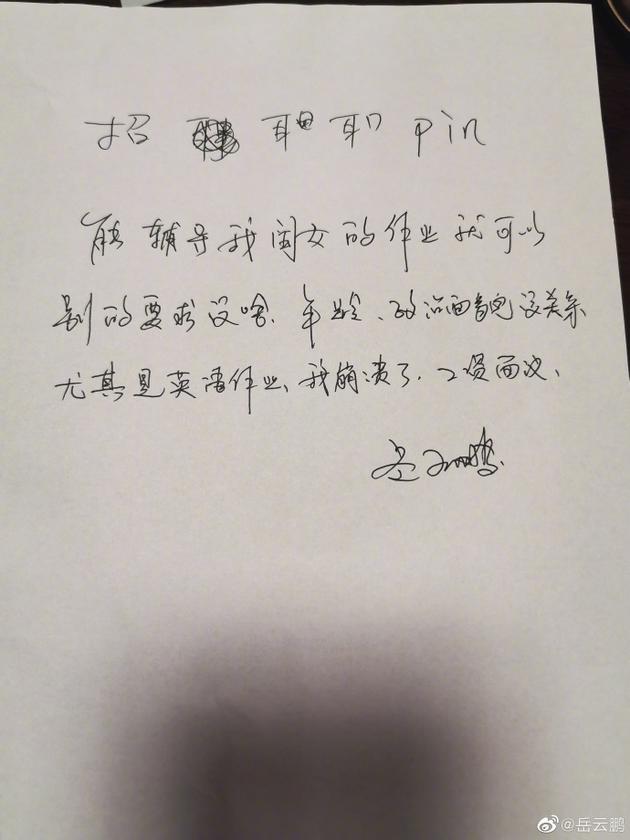 招 耳口 pin
能辅导我闺女的作业就可以
别的要求没啥.年龄、政治面貌没关系
尤其是英语作业、我崩溃了.工资面议、
岳云鹏
@岳云鹏